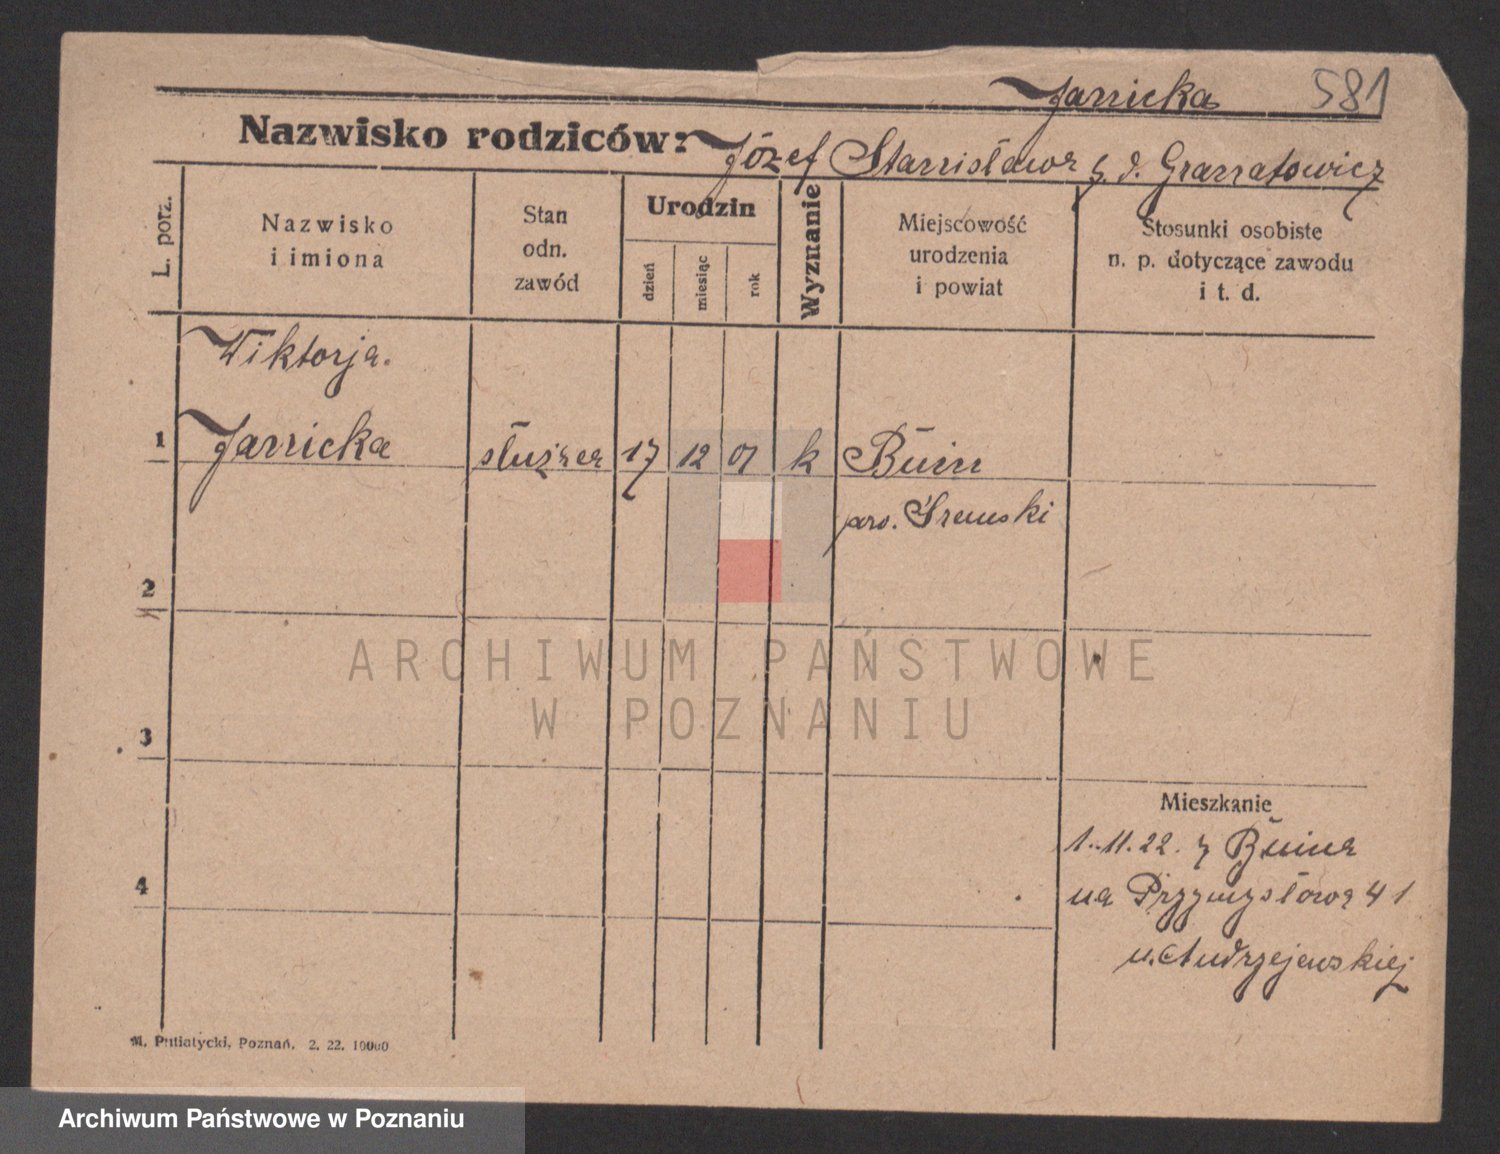 Janicka 581
Nazwisko rodziców: Józef Stanisława z d. Granatowicz
L. porz.
Nazwisko
i imiona
Stan
odn.
zawód
Urodzin
dzień
miesiąc
rok
Wyznanie
Miejscowość
urodzenia
i powiat
Stosunki osobiste
n. p. dotyczące zawodu
i t. d.
Wiktorja.
1 Janicka służąca 17 12 01 k Bnin
pow. Śremski
2
3
4
Mieszkanie
1.11.22. z Bnina
na Przymysłową 41
u. Andrzejewskiej
M. Putiatycki, Poznań. 2. 22. 10000
ARCHIWUM PAŃSTWOWE
W POZNANIU
Archiwum Państwowe w Poznaniu